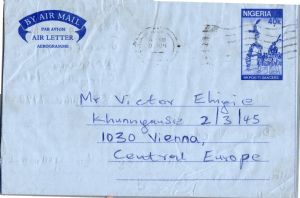 BY AIR MAIL
PAR AVION
AIR LETTER
AEROGRAMME
NIGERIA
EKPO FESTIVAL DANCERS
Mr Victor Ehigie
Khunngasse 2/3/45
1030 Vienna,
Central Europe